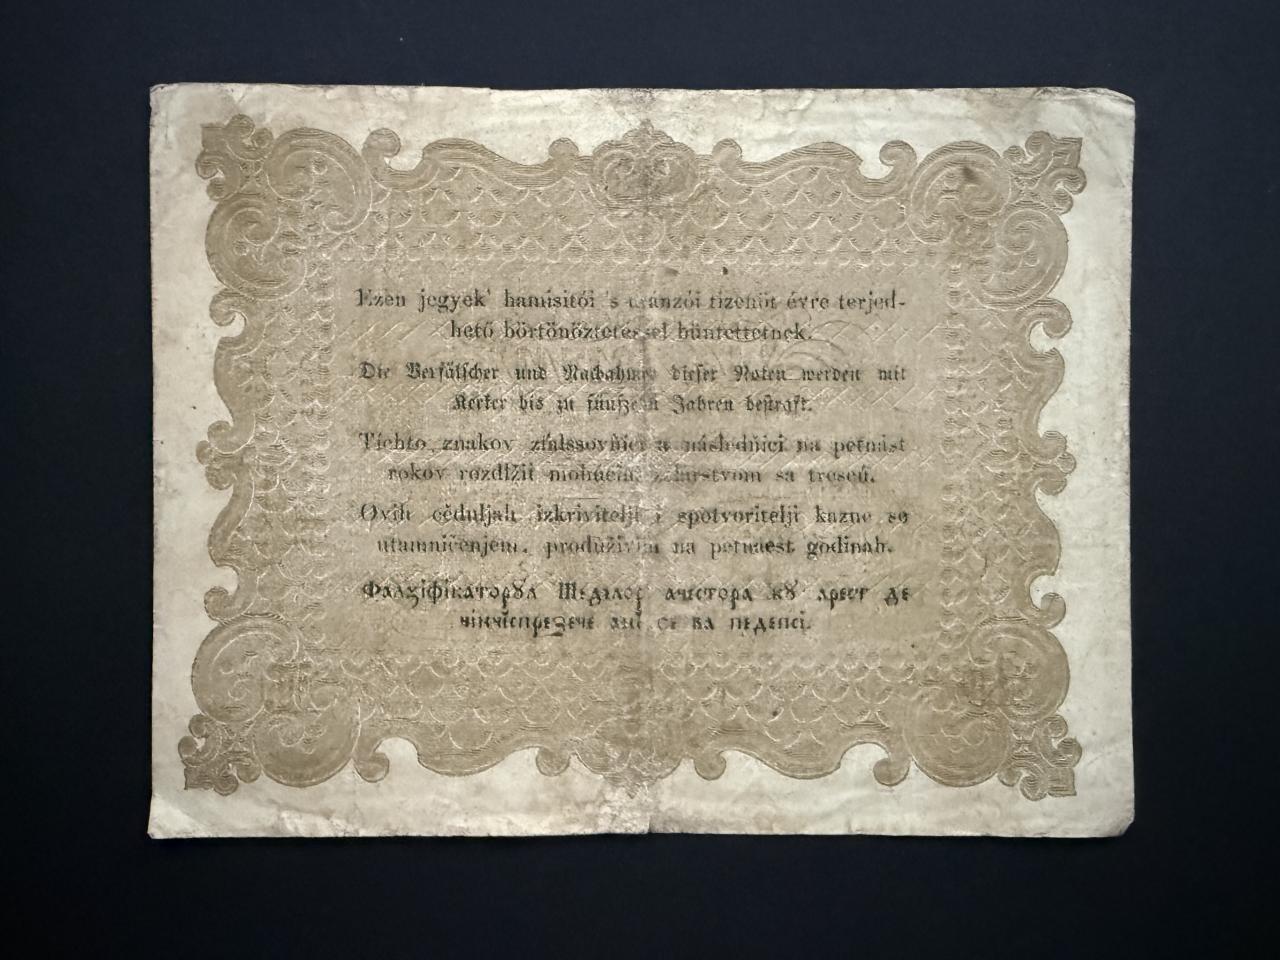 Ezen jegyek' hamisitói 's utánzói tizenöt évre terjed-
hető börtönöztetéssel büntettetnek.
Die Verfälscher und Nachahmer dieser Noten werden mit
Kerker bis zu fünfzehn Jahren bestraft.
Tichto znakov zfalssovňíci a následňíci na petnást
rokov rozdlžit mohúcím žalárstvom sa trescú.
Ovih cĕduljah izkrivitelji i spotvoritelji kazne se
utamničenjem, produživim na petnaest godinah.
Фалꙁіфікаторꙋл Шедꙋлор ачестора кꙋ арест де
чінчіспреꙁече ані се ва педепсі.